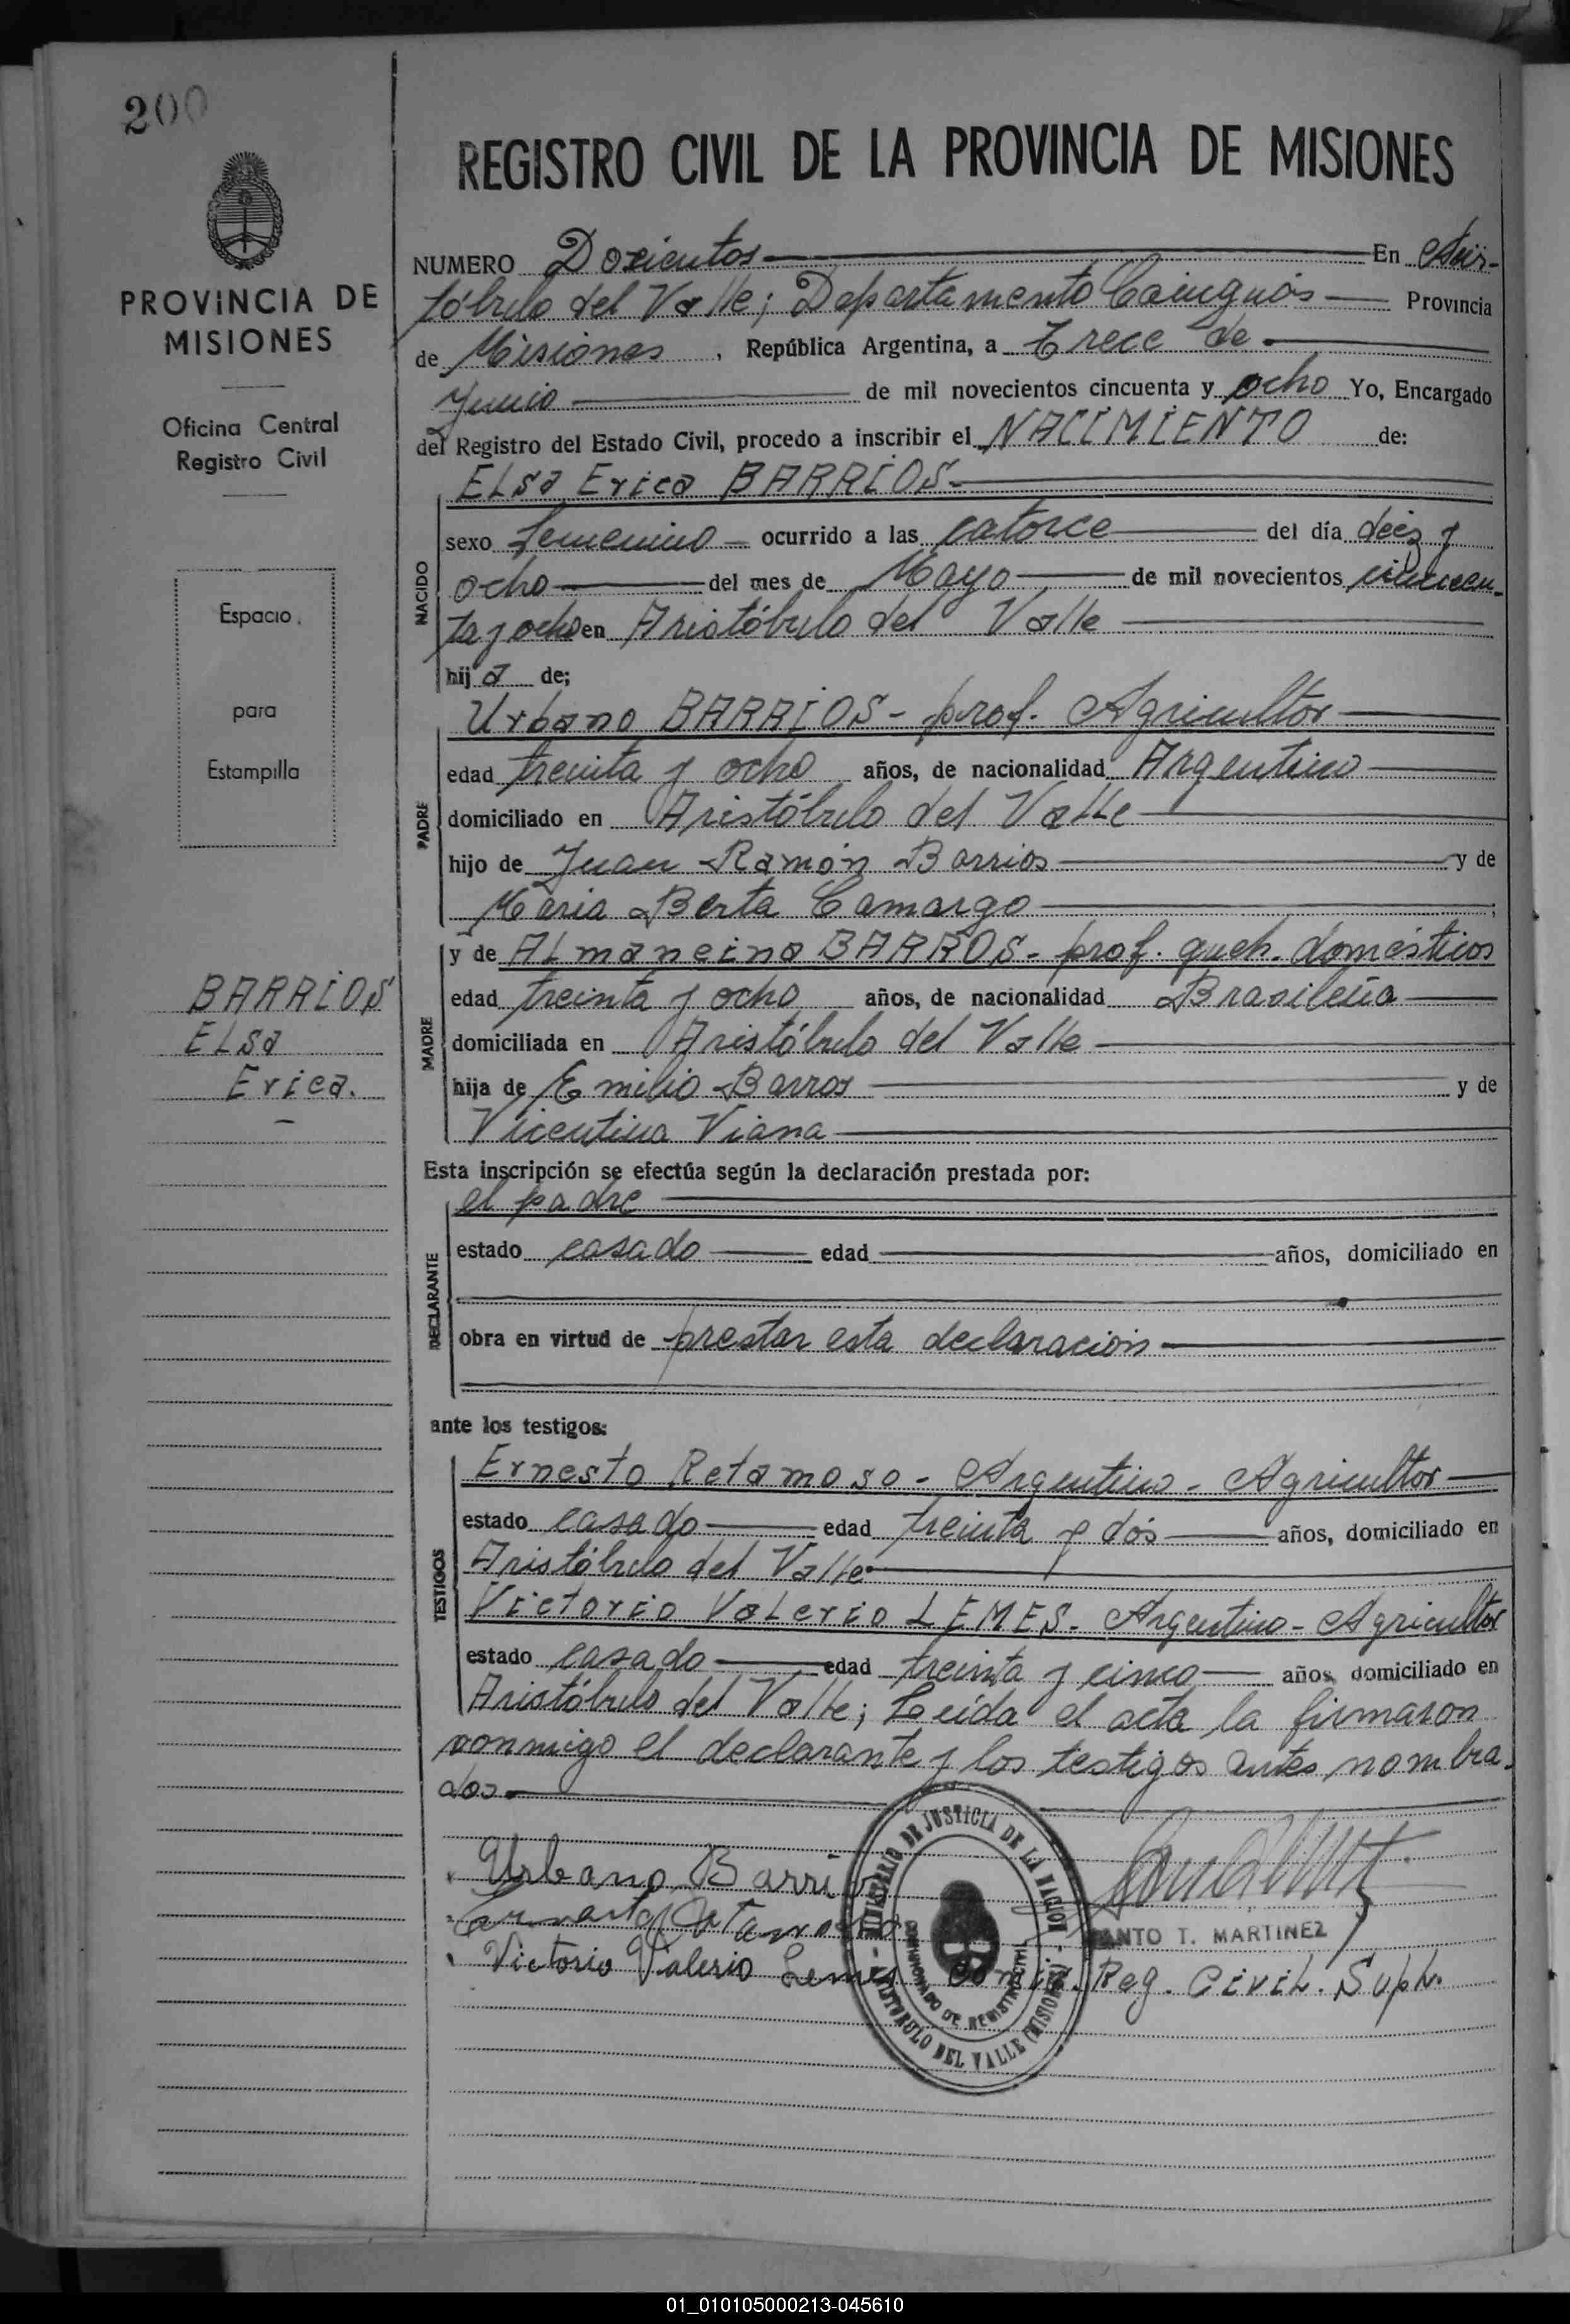 200
PROVINCIA DE
MISIONES
Oficina Central
Registro Civil
Espacio
para
Estampilla
BARRIOS
ELSA
Erica.
REGISTRO CIVIL DE LA PROVINCIA DE MISIONES
NUMERO Doscientos En Aris-
tóbulo del Valle; Departamento Cainguás Provincia
de Misiones, República Argentina, a Trece de
Junio de mil novecientos cincuenta y ocho Yo, Encargado
del Registro del Estado Civil, procedo a inscribir el NACIMIENTO de:
NACIDO
ELSA Erica BARRIOS
sexo femenino ocurrido a las catorce del día diez y
ocho del mes de Mayo de mil novecientos cincuen-
ta y ocho en Aristóbulo del Valle
hija de;
PADRE
Urbano BARRIOS - prof. Agricultor
edad treinta y ocho años, de nacionalidad Argentino
domiciliado en Aristóbulo del Valle
hijo de Juan Ramón Barrios y de
Maria Berta Camargo;
MADRE
y de ALmancina BARROS - prof. queh. domésticos
edad treinta y ocho años, de nacionalidad Brasileña
domiciliada en Aristóbulo del Valle
hija de Emilio Barros y de
Vicentina Viana
Esta inscripción se efectúa según la declaración prestada por:
DECLARANTE
el padre
estado casado edad años, domiciliado en
obra en virtud de prestar esta declaración
ante los testigos:
TESTIGOS
Ernesto Retamoso - Argentino - Agricultor
estado casado edad treinta y dós años, domiciliado en
Aristóbulo del Valle
Victorio Valerio LEMES - Argentino - Agricultor
estado casado edad treinta y cinco años, domiciliado en
Aristóbulo del Valle; Leída el acta la firmaron
conmigo el declarante y los testigos antes nombra-
dos.
Urbano Barri
MINISTERIO DE JUSTICIA DE LA NACION
ARISTOBULO DEL VALLE (MISIONES)
SANTO T. MARTINEZ
Victorio Valerio Lemes
Reg. Civil. Supl.
01_010105000213-045610